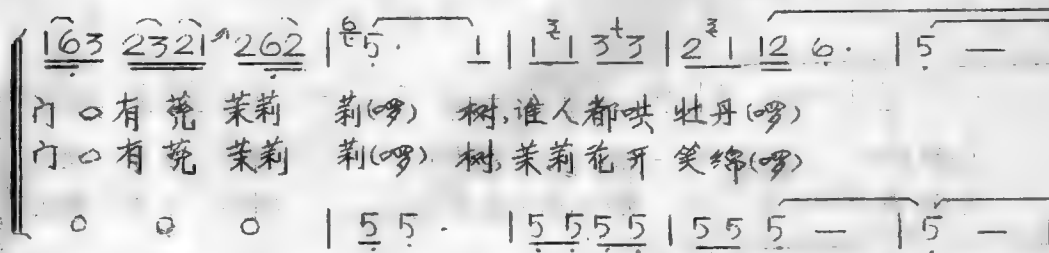 163 2321 262 | 5. 1 | 1 1 3 3 | 2 1 12 6. | 5 —
门口有莞茉莉 莉(啰) 树,谁人都哄牡丹(啰)
门口有莞茉莉 莉(啰) 树,茉莉花开笑绵(啰)
0 0 0 | 5 5. | 5 5 5 5 | 5 5 5 — | 5 — |